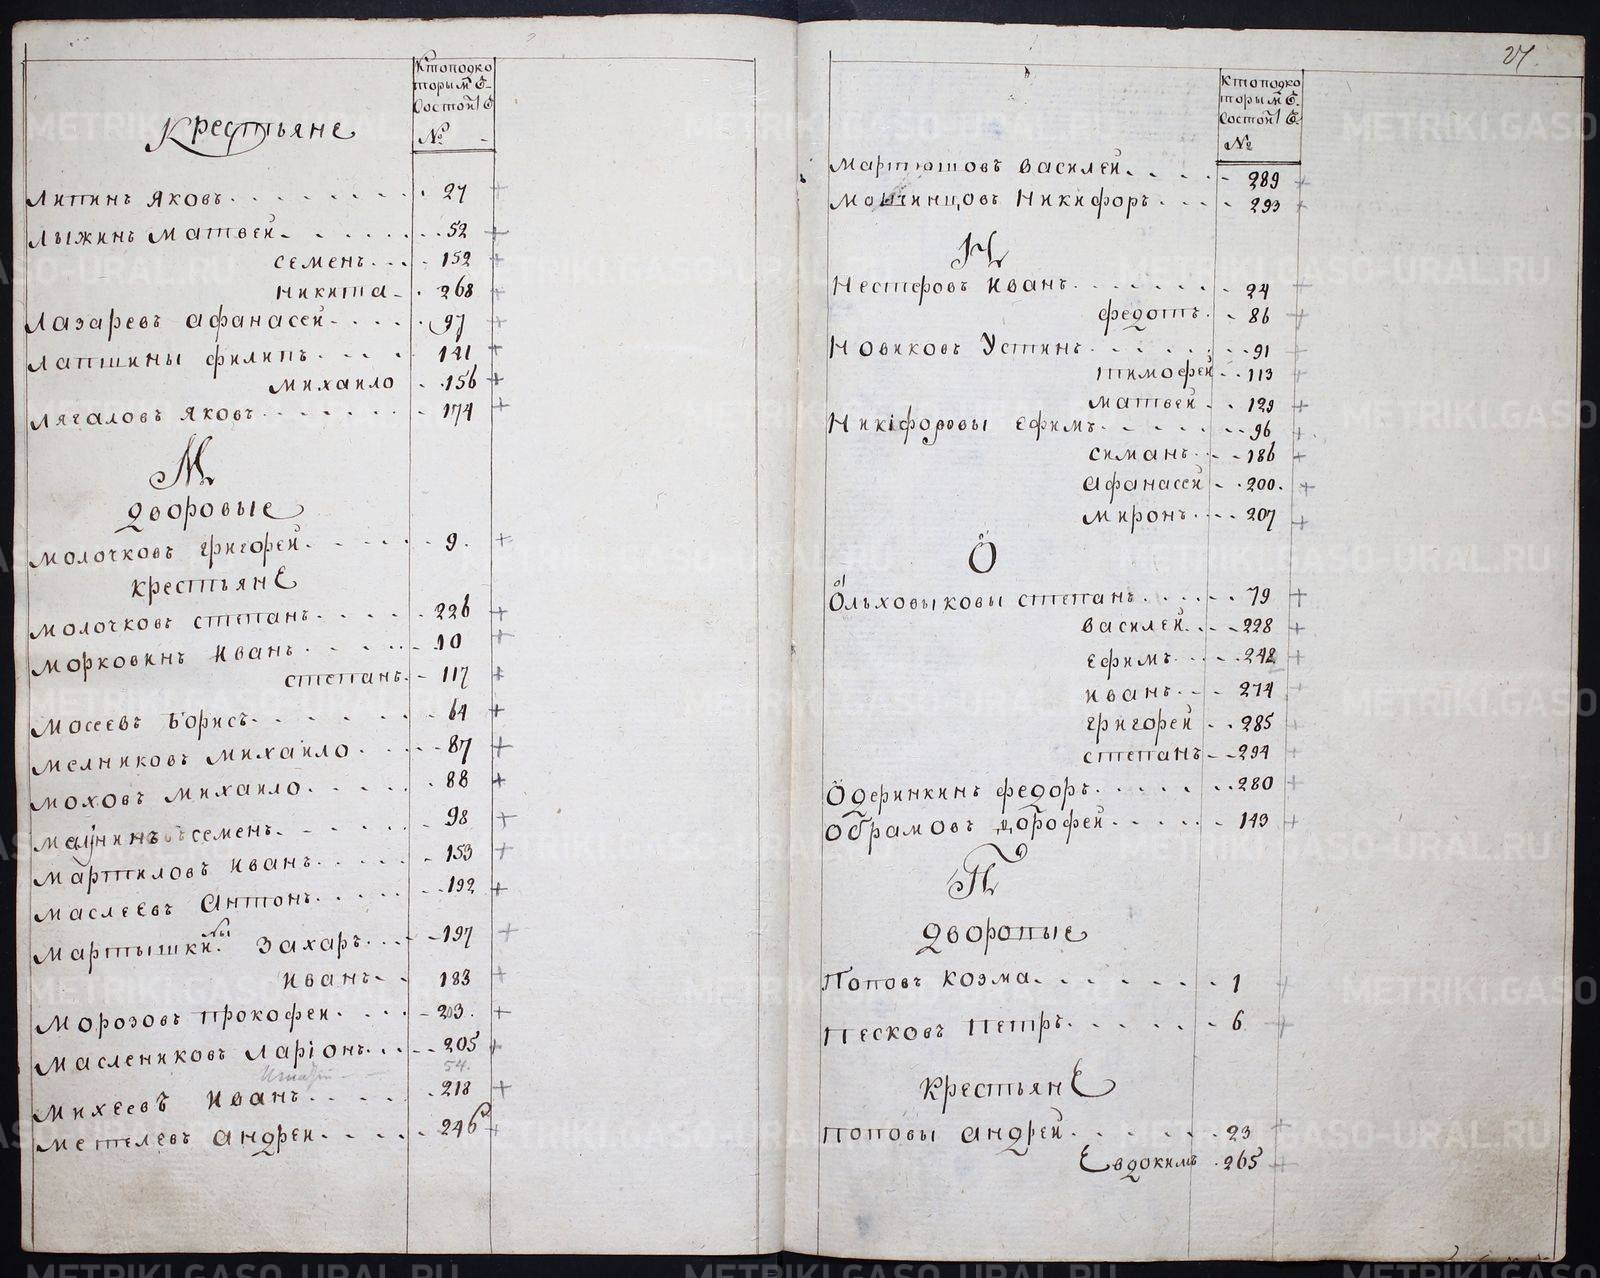 Ктоподко
торымъ №
состоитъ
№
Крестьяне
Липинъ яковъ 27
Лыжинъ матвей 52
семенъ 152
никита 268
Лазаревъ афанасей 97
Лапшины филипъ 141
михаило 156
Лягаловъ яковъ 174
М
дворовые
Молочковъ григорей 9
крестьяне
Молочковъ степанъ 226
Морковинъ иванъ 10
степанъ 117
Мосеевъ борисъ 64
Мелниковъ михаило 87
Моховъ михаило 88
семенъ 98
Мартиловъ иванъ 153
Маслеевъ Антонъ 192
Мартышкины Захаръ 197
иванъ 183
Морозовъ прокофей 203
Маслениковъ Ларіонъ 205
54
Михеевъ иванъ 218
Метелевъ андрей 246
27
Ктоподко
торымъ №
состоитъ
№
Мартюшовъ василей 289
Никифоръ 293
Н
Нестеровъ иванъ 24
федотъ 86
Новиковъ Устинъ 91
тимофей 113
матвей 129
Никіфоровы ефимъ 96
симанъ 186
афанасей 200
миронъ 207
О
Ольховыковы степанъ 79
василей 228
ефимъ 242
иванъ 274
григорей 285
степанъ 294
Одеринкинъ федоръ 280
Обрамовъ дорофей 143
П
дворопые
Поповъ козма 1
Песковъ петръ 6
крестьяне
поповы андрей 23
Евдокимъ 265
METRIKI.GASO-URAL.RU